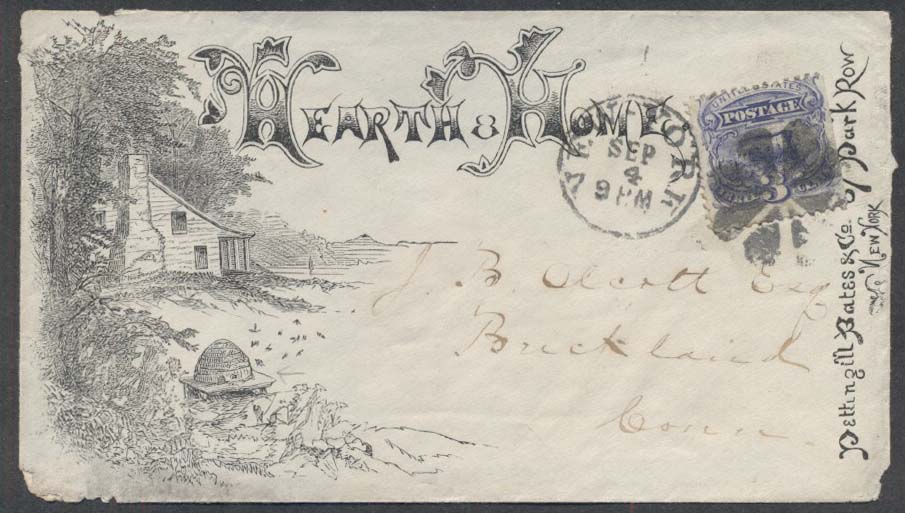 HEARTH & HOME
NEW YORK
SEP
4
9 PM
UNITED STATES
POSTAGE
3
J. B. Olcott Esq
Buckland
Conn.
Pettingill Bates & Co. 37 Park Row
NEW YORK